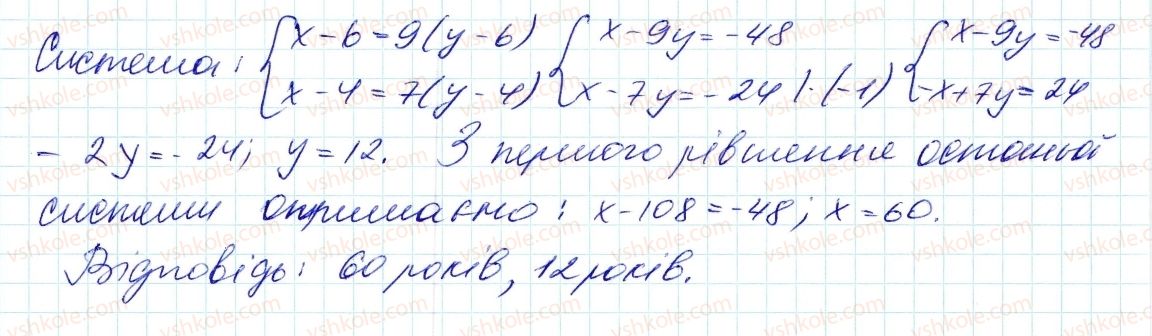 Система: { x - 6 = 9(y - 6) { x - 9y = -48 { x - 9y = -48
x - 4 = 7(y - 4) x - 7y = -24 | · (-1) -x + 7y = 24
- 2y = -24; y = 12. З першого рівняння останьої
системи отримаємо: x - 108 = -48; x = 60.
Відповідь: 60 років, 12 років.